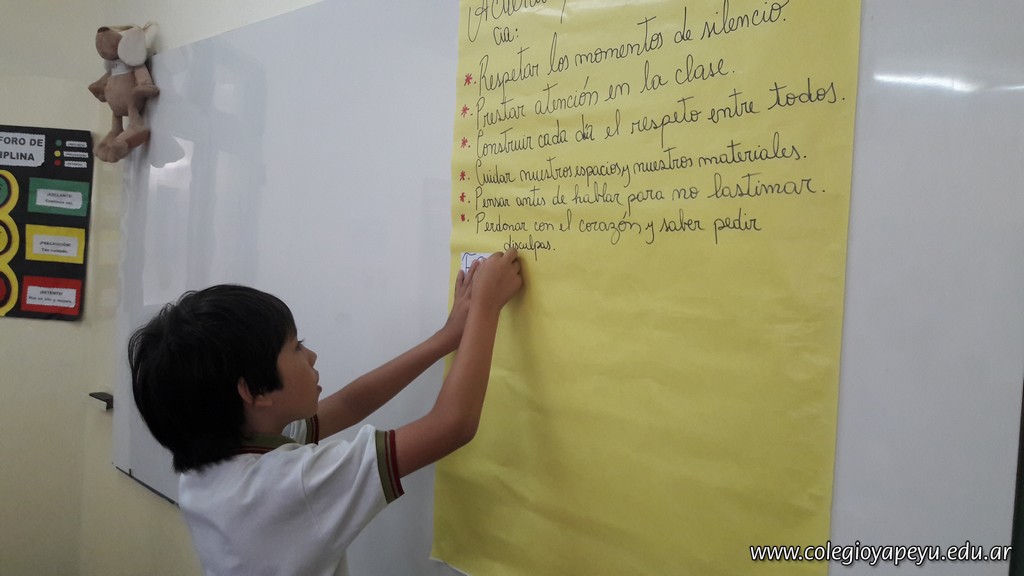 cia:
*. Respetar los momentos de silencio.
*. Prestar atención en la clase.
*. Construir cada día el respeto entre todos.
*. Cuidar nuestros espacios y nuestros materiales.
*. Pensar antes de hablar para no lastimar.
*. Perdonar con el corazón y saber pedir
disculpas.
FORO DE
IPLINA
¡ADELANTE!
¡PRECAUCIÓN!
¡DETENTE!
www.colegioyapeyu.edu.ar